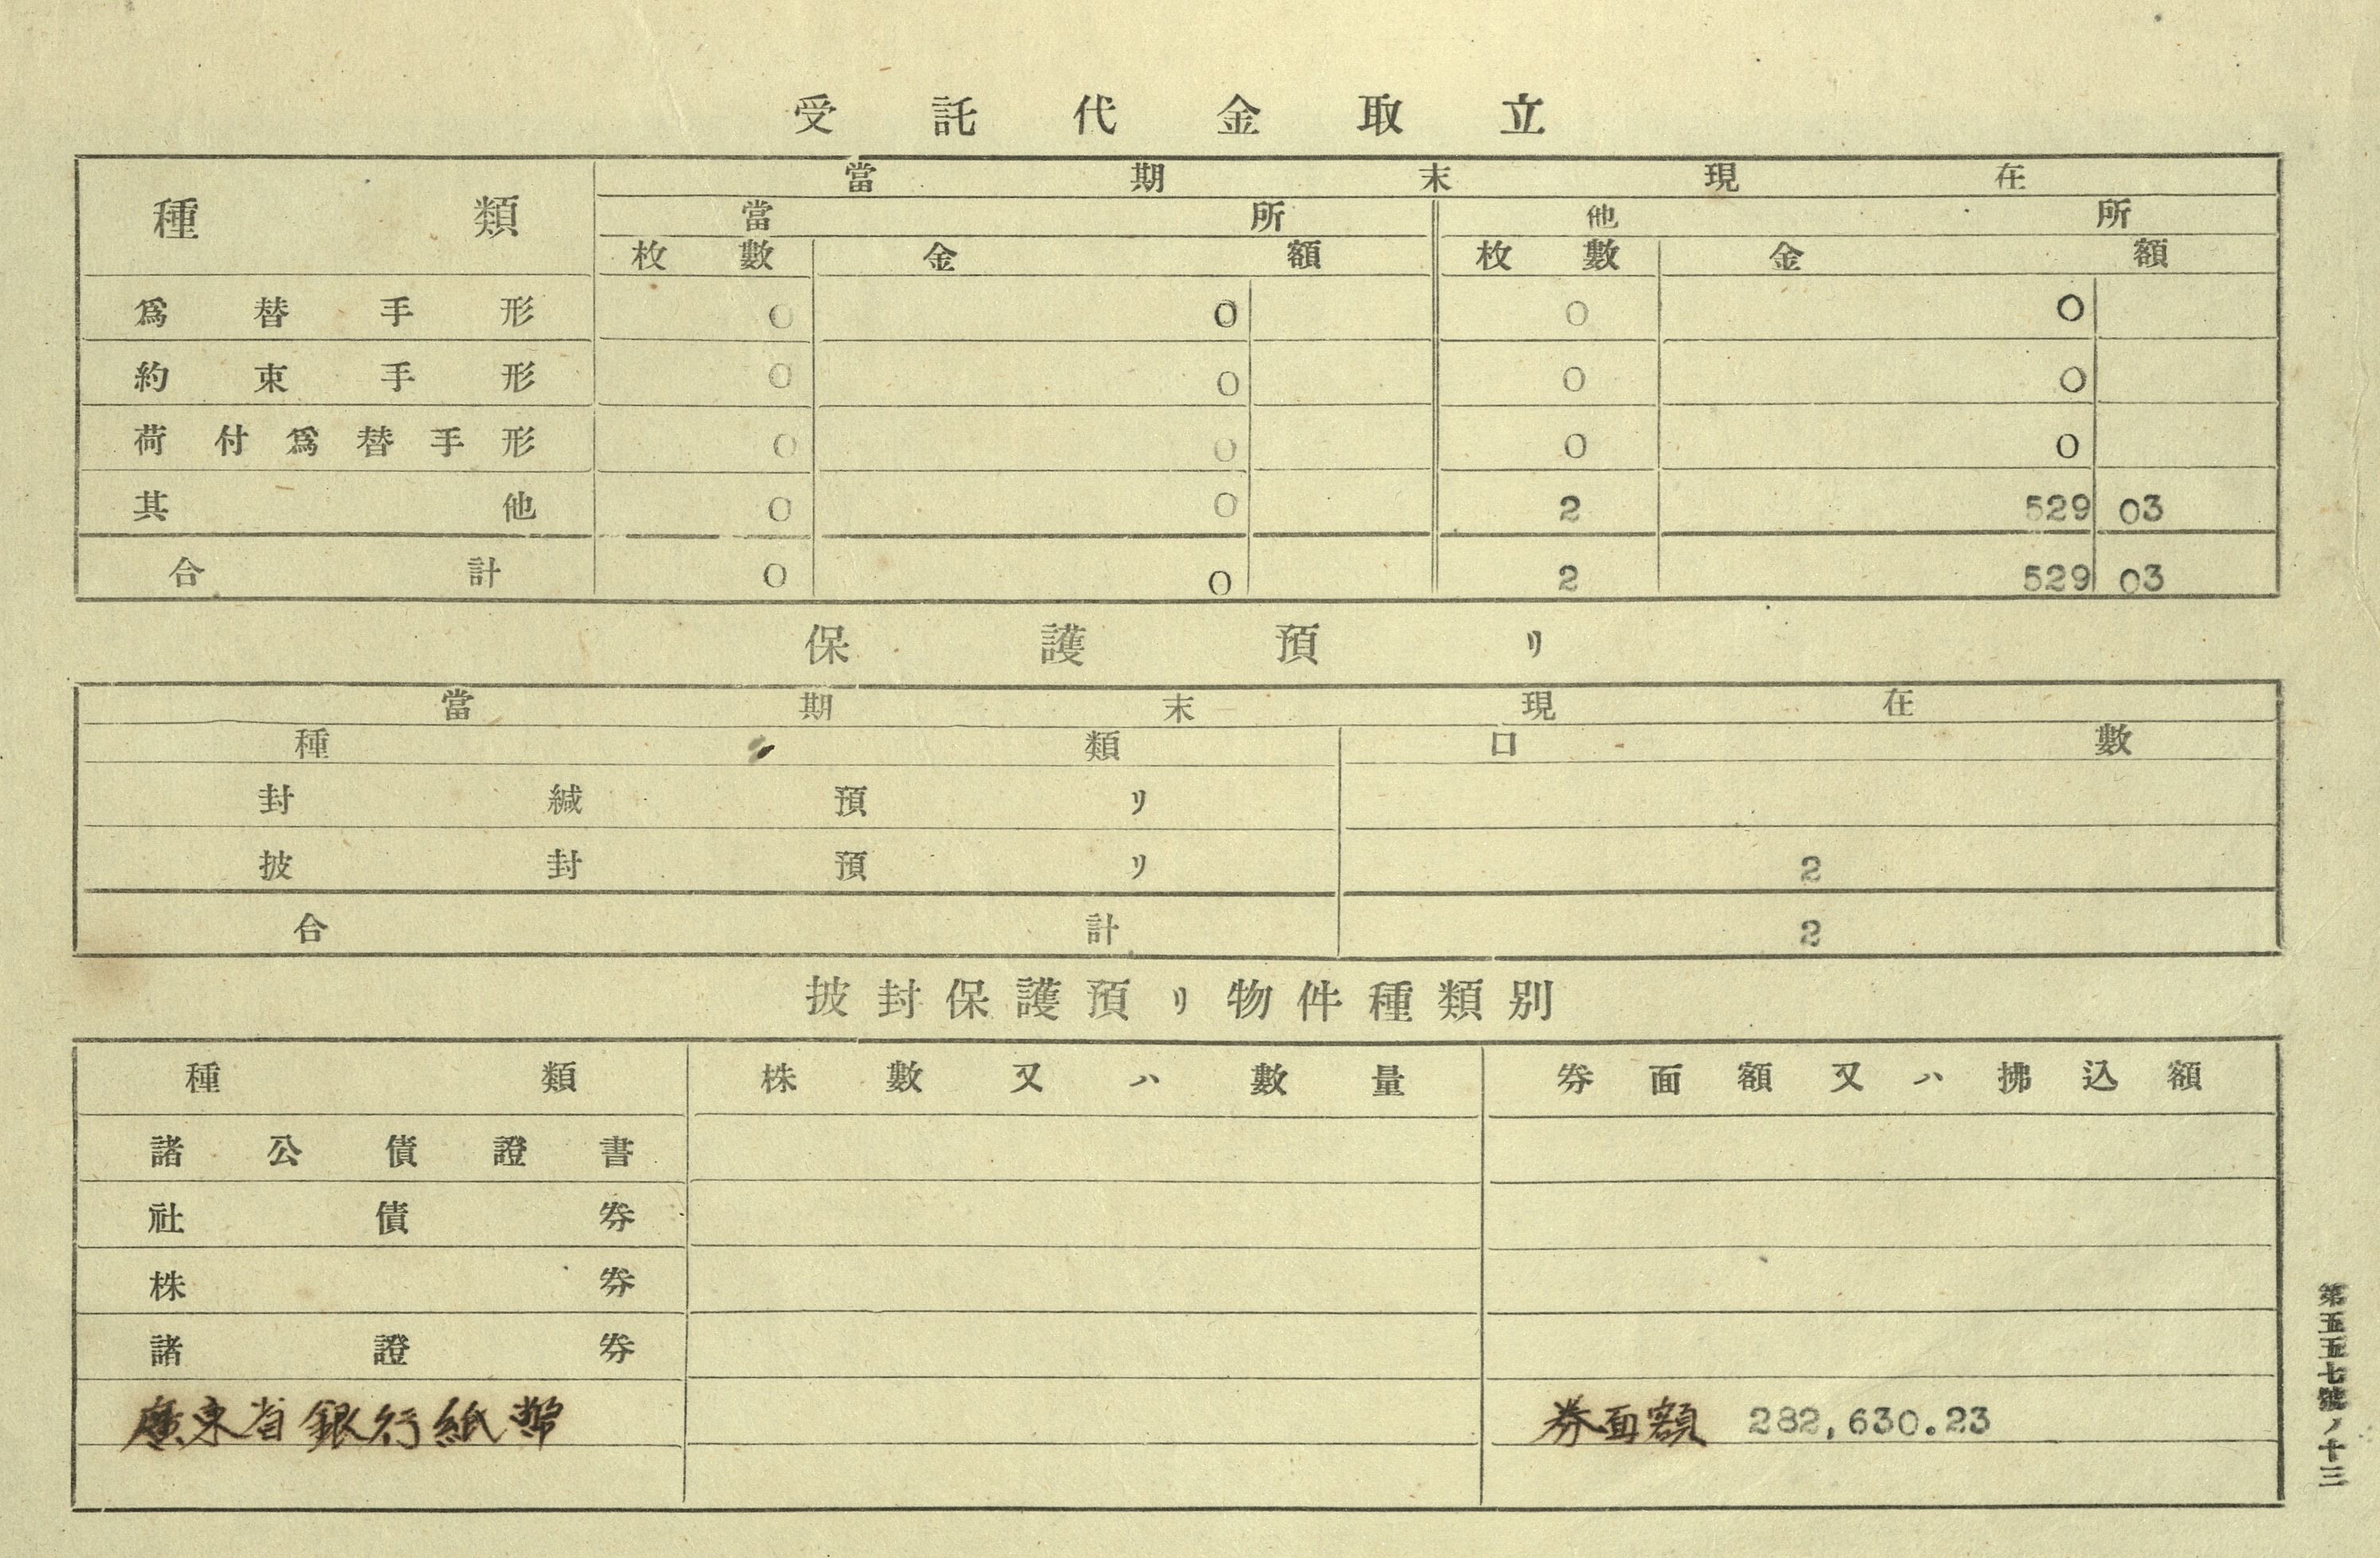 受託代金取立
種類 當期末現在
當所 他所
枚數 金額 枚數 金額
爲替手形 0 0 0 0
約束手形 0 0 0 0
荷付爲替手形 0 0 0 0
其他 0 0 2 529 03
合計 0 0 2 529 03
保護預リ
當期末現在
種類 口數
封緘預リ
披封預リ 2
合計 2
披封保護預リ物件種類別
種類 株數又ハ數量 券面額又ハ拂込額
諸公債證書
社債券
株券
諸證券
廣東省銀行紙幣 券面額 282,630.23
第五五七號ノ十三